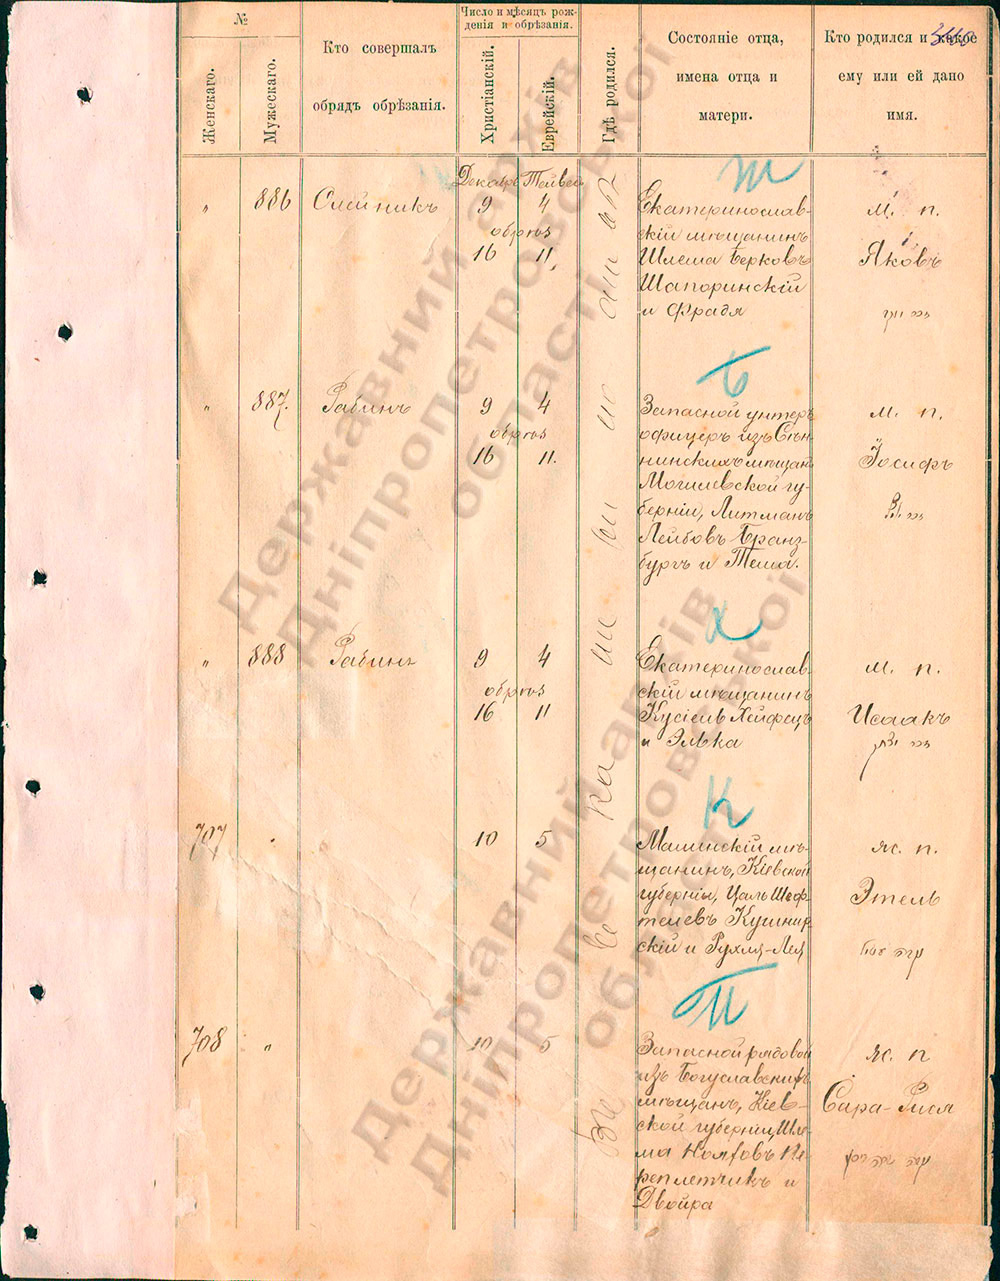 №
Женскаго.
Мужескаго.
Кто совершалъ
обрядъ обрѣзанія.
Число и мѣсяцъ рож-
денія и обрѣзанія.
Христіанскій.
Еврейскій.
Гдѣ родился.
Состояніе отца,
имена отца и
матери.
Кто родился и какое
ему или ей дано
имя.
Ш
Декабр Тейвес
„ 886 Олейникъ 9 4
обрѣз
16 11
Екатеринослав-
скій мѣщанинъ
Шлема Берковъ
Шапоринскій
и Фрадя
м. п.
Яковъ
זכר יעקב
Б
„ 887. Рабинъ 9 4
обрѣз
16 11.
Запасной унтеръ
офицеръ изъ Сѣн-
нинскихъ мѣщан
Могилевской гу-
берніи, Литманъ
Лейбовъ Гранз-
бургъ и Теша.
м. п.
Іосифъ
Х
„ 888 Рабинъ 9 4
обрѣз
16 11
Екатеринослав-
скій мѣщанинъ
Кусіель Хейфецъ
и Элька
м. п.
Исаакъ
זכר יצחק
К
707 „ 10 5
Малинскій мѣ-
щанинъ, Кіевской
губерніи, Цаль Шеф-
телевъ Кушнир-
скій и Рухля-Лея
жс. п.
Этель
נקבה עטל
П
708 „ 10 5
Запасной рядовой
изъ Богуславскихъ
мѣщанъ, Кіев-
ской губерніи, Шле-
ма Пе-
реплетчикъ и
Двойра
жс. п
Сара-
Въ Екатеринославѣ
Державний архів
Дніпропетровської
області
Державний архів
Дніпропетровської
області